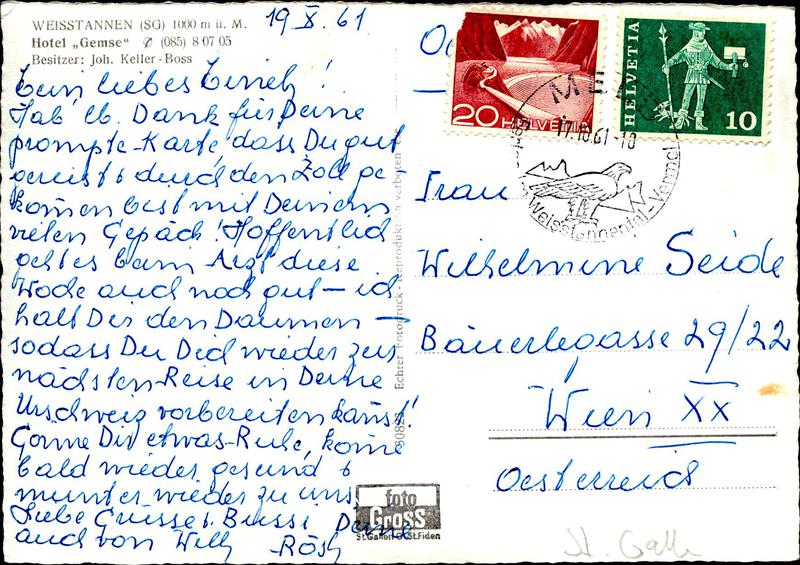 WEISSTANNEN (SG) 1000 m ü. M.
Hotel „Gemse“ (085) 8 07 05
Besitzer: Joh. Keller-Boss
19 X. 61
Mein liebes
Hab' lb. Dank für Deine
prompte Karte, dass Du gut
gereist & durch den Zoll ge-
kommen bist mit Deinem
vielen Gepäck! Hoffentlich
geht es beim Arzt diese
Woche auch noch gut – ich
halt Dir den Daumen –
sodass Du Dich wieder zur
nächsten Reise in Deine
Urschweiz vorbereiten kannst!
Gönne Dir etwas Ruhe, komme
bald wieder gesund &
munter wieder zu uns
Liebe Grüsse & Bussi Deine
auch von Willy Rösly
Echter Fotodruck - Reproduktion verboten
foto
Gross
St. Gallen O St. Fiden
20 HELVETIA
HELVETIA
10
17.10.61-18
Weisstannental - Vermol
Frau
Wilhelmine Seide
Bäuerlegasse 29/22
Wien XX
Oesterreich
St. Galle